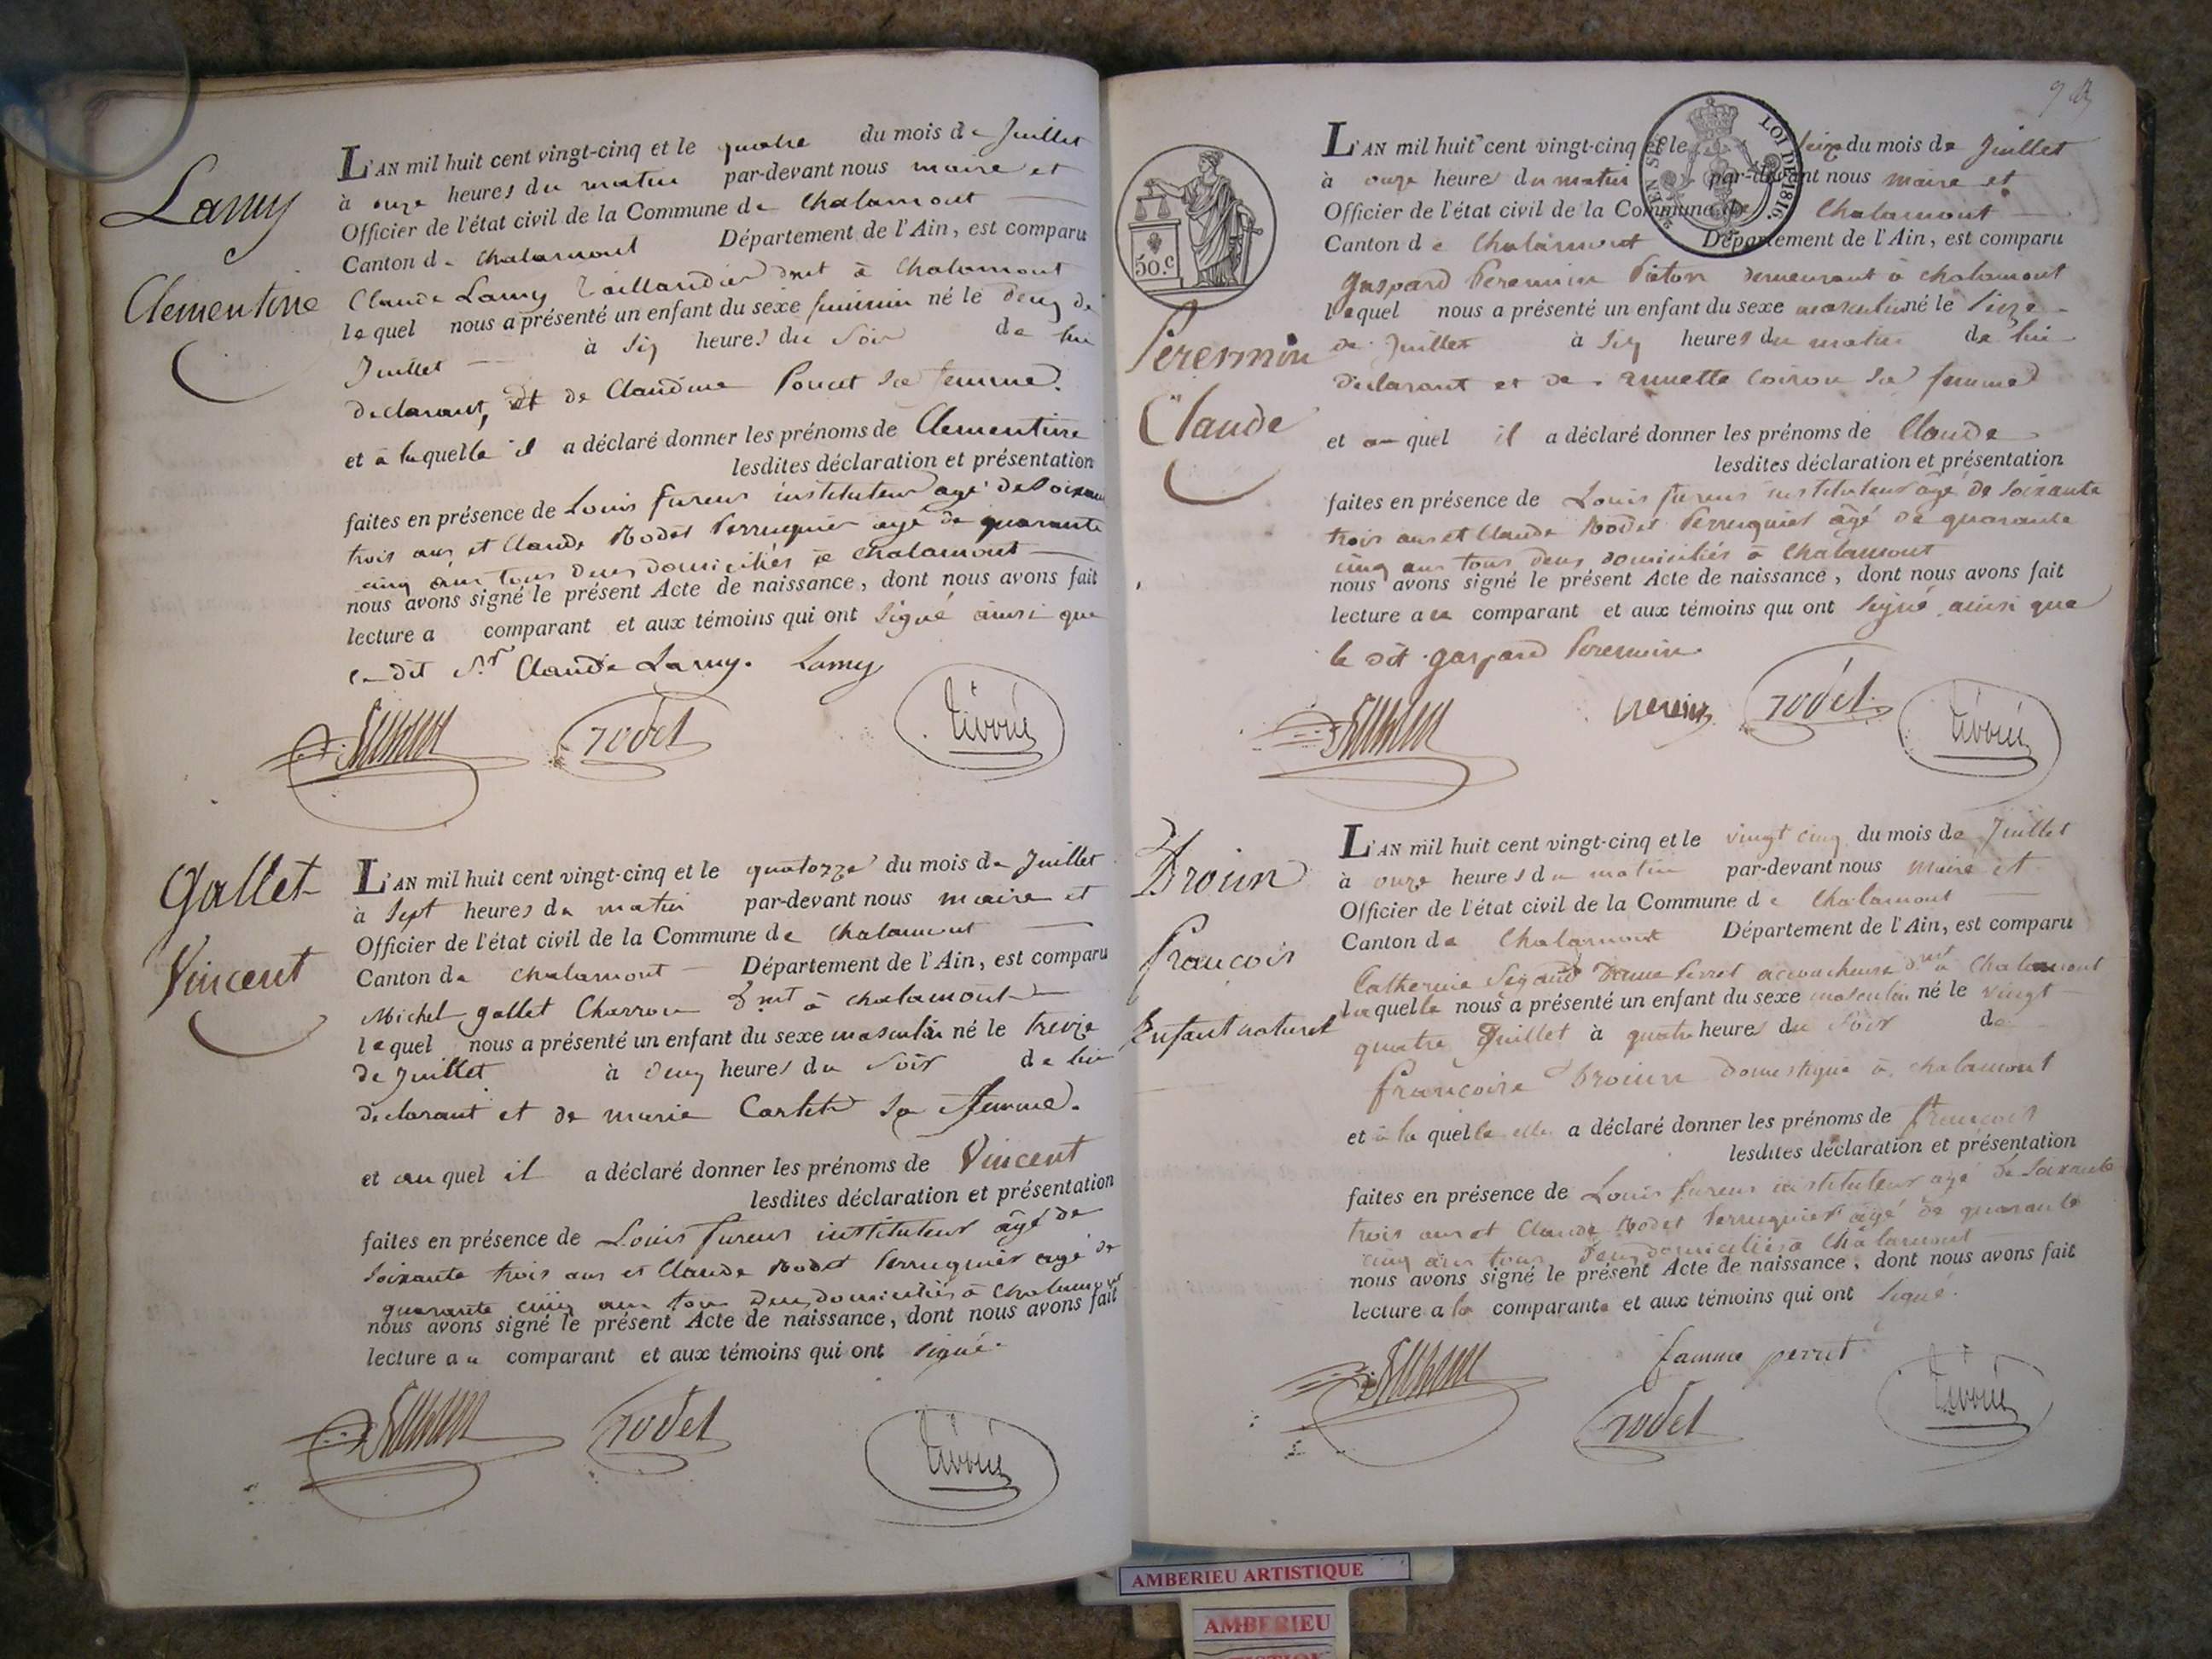 Lamy
Clementine
L'AN mil huit cent vingt-cinq et le quatre du mois de Juillet
à onze heures du matin par-devant nous maire et
Officier de l'état civil de la Commune de Chalamont
Canton de Chalamont Département de l'Ain, est comparu
Claude Lamy Taillandier dmt à Chalamont
lequel nous a présenté un enfant du sexe feminin né le deux de
Juillet à six heures du soir de lui
declarant, et de Claudine Poncet sa femme.
et à laquelle il a déclaré donner les prénoms de Clementine
lesdites déclaration et présentation
faites en présence de Louis fureur instituteur agé de Soixante
trois ans et Claude Rodet Perruquier agé de quarante
cinq ans tous deux domiciliés à Chalamont
nous avons signé le présent Acte de naissance, dont nous avons fait
lecture a comparant et aux témoins qui ont signé ainsi que
le dit Sr. Claude Lamy. Lamy
rodet
Gallet
Vincent
L'AN mil huit cent vingt-cinq et le quatorze du mois de Juillet
à sept heures du matin par-devant nous maire et
Officier de l'état civil de la Commune de Chalamont
Canton de Chalamont Département de l'Ain, est comparu
Michel gallet Charron dmt à chalamont
lequel nous a présenté un enfant du sexe masculin né le treize
de Juillet à deux heures du soir de lui
declarant et de marie Carlet sa femme.
et au quel il a déclaré donner les prénoms de Vincent
lesdites déclaration et présentation
faites en présence de Louis fureur instituteur âgé de
soixante trois ans et Claude Rodet Perruquier agé de
quarante cinq ans tous deux domiciliés à Chalamont
nous avons signé le présent Acte de naissance, dont nous avons fait
lecture au comparant et aux témoins qui ont signé.
rodet
50.c
LOI DE 1816.
Peremin
Claude
L'AN mil huit cent vingt-cinq et le seize du mois de Juillet
à onze heures du matin par-devant nous maire et
Officier de l'état civil de la Commune de Chalamont
Canton de Chalamont Département de l'Ain, est comparu
Gaspard Peremin Piéton demeurant à chalamont
lequel nous a présenté un enfant du sexe masculin né le seize
de Juillet à six heures du matin de lui
declarant et de annette Coiron sa femme
et au quel il a déclaré donner les prénoms de Claude
lesdites déclaration et présentation
faites en présence de Louis fureur instituteur agé de soixante
trois ans et Claude Rodet Perruquier âgé de quarante
cinq ans tous deux domiciliés à Chalamont
nous avons signé le présent Acte de naissance, dont nous avons fait
lecture au comparant et aux témoins qui ont signé ainsi que
le dit gaspard Peremin
rodet
Drouin
francois
Enfant naturel
L'AN mil huit cent vingt-cinq et le vingt cinq du mois de Juillet
à onze heures du matin par-devant nous maire et
Officier de l'état civil de la Commune de Chalamont
Canton de Chalamont Département de l'Ain, est comparu
Catherine femme Perret accoucheuse dmt à Chalamont
laquelle nous a présenté un enfant du sexe masculin né le vingt
quatre Juillet à quatre heures du soir de
françoise Drouin domestique à chalamont
et à la quelle elle a déclaré donner les prénoms de francois
lesdites déclaration et présentation
faites en présence de Louis fureur instituteur agé de Soixante
trois ans et Claude Rodet Perruquier agé de quarante
cinq ans tous deux domiciliés à Chalamont
nous avons signé le présent Acte de naissance, dont nous avons fait
lecture a la comparante et aux témoins qui ont signé.
famme perret
rodet
AMBERIEU ARTISTIQUE
AMBERIEU